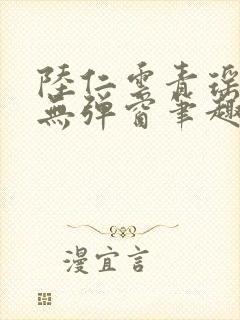 陸仁雲青瑤
無彈窗筆趣
漫宜言